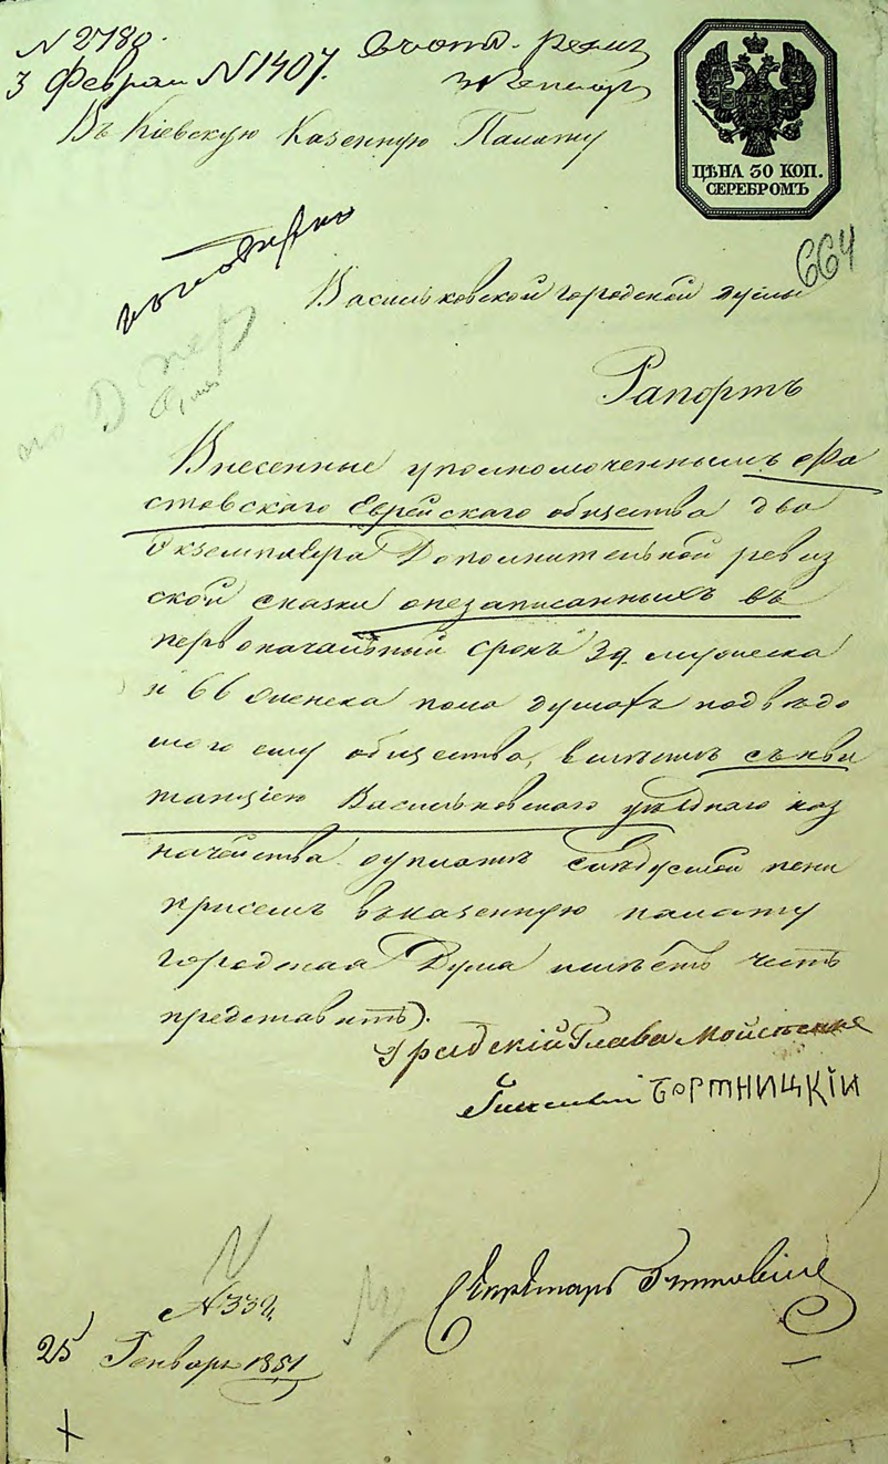 N 2780.
3 Феврал N 1407.
ЦѢНА 30 КОП.
СЕРЕБРОМЪ
Въ Кіевскую Казенную Палату
664
Васильковской городской думы
Рапортъ
Внесенные уполномоченнымъ Фа
стовскаго Еврейскаго общества два
Экземпляра Дополнительной ревиз
ской сказки о незаписанныхъ въ
первоначальный срокъ 39 мужеска
и 66 женска пола душахъ подвѣдо
маго ему общества, вмѣстѣ съ кви
танціею Васильковскаго уѣзднаго каз
начейства о уплатѣ слѣдуемой пени
присемъ въ казенную палату
городская Дума имѣетъ честь
представить.
Градскій Глава
Гласный БОРТНИЦКІЙ
Секретарь
N 332
25 Генваря 1851